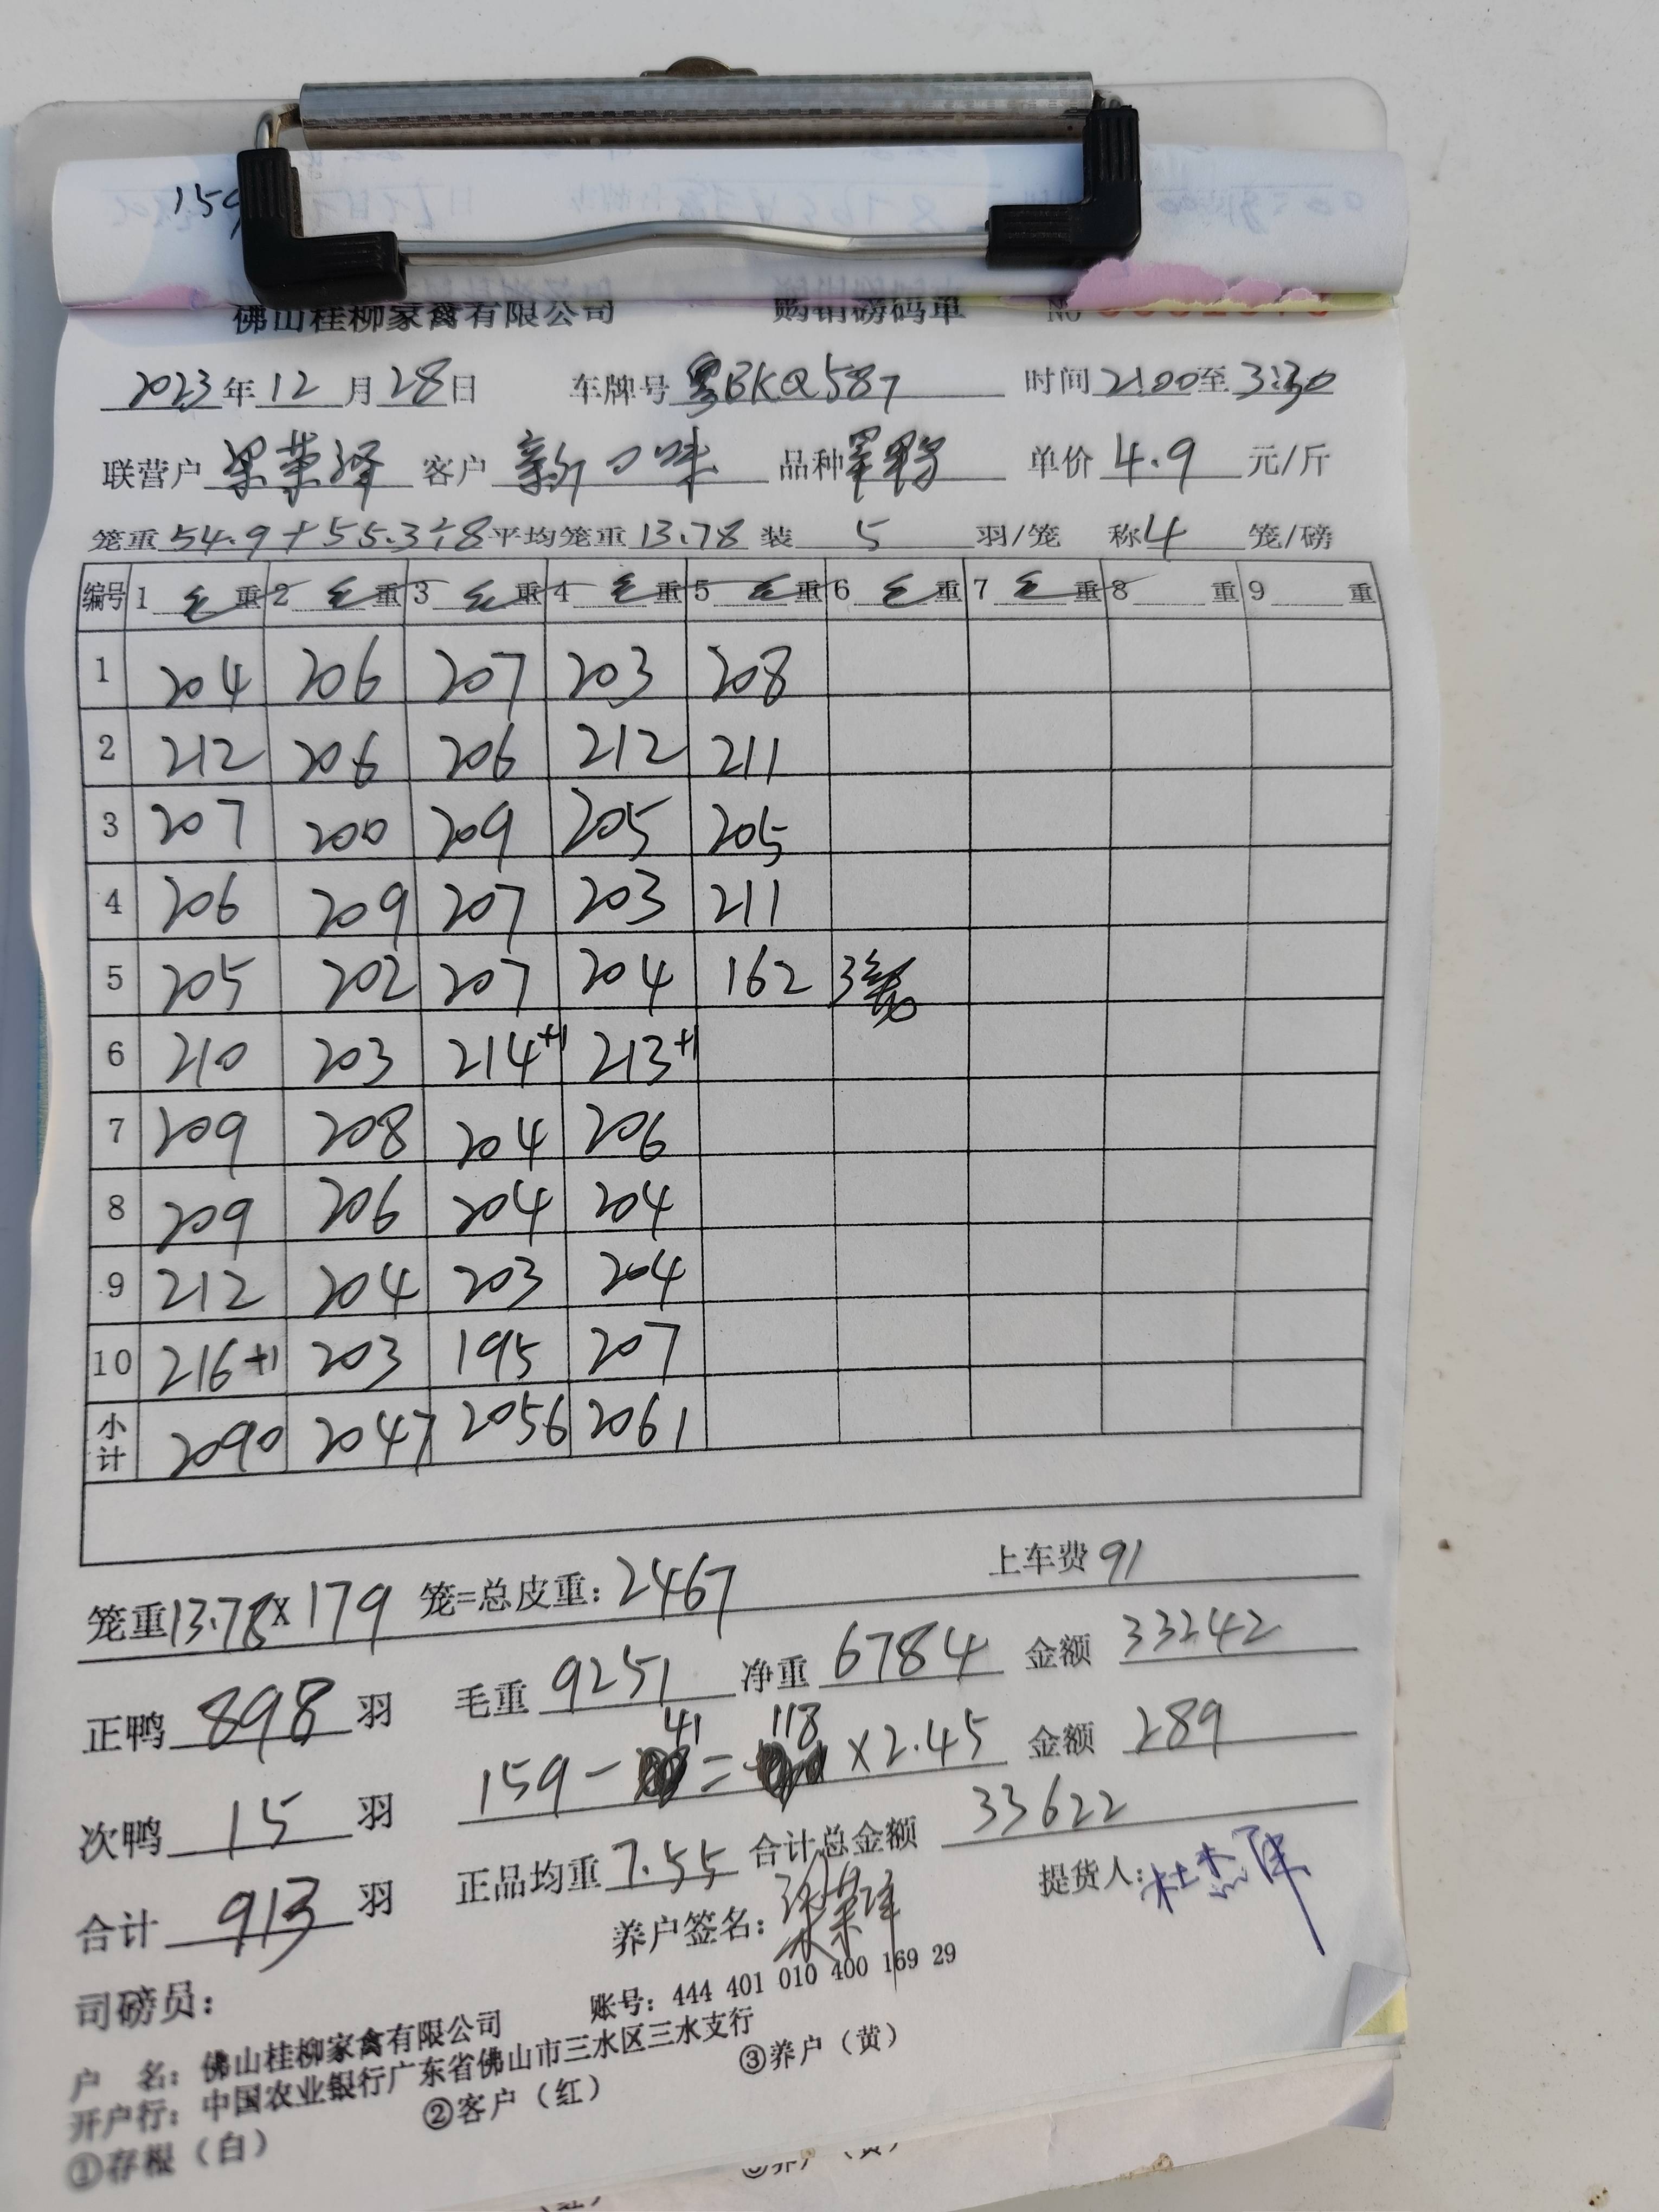 159
佛山桂柳家禽有限公司 购销磅码单 NO
2023年12月28日 车牌号 粤BKQ587 时间 2:00至3:30
联营户 梁荣泽 客户 新口味 品种 单价 4.9 元/斤
笼重 54.9+55.3÷8 平均笼重 13.78 装 5 羽/笼 称 4 笼/磅
编号 1 毛重 2 毛重 3 毛重 4 毛重 5 毛重 6 毛重 7 毛重 8 重 9 重
1 204 206 207 203 208
2 212 206 206 212 211
3 207 200 209 205 205
4 206 209 207 203 211
5 205 202 207 204 162 3
6 210 203 214+1 213+1
7 209 208 204 206
8 209 206 204 204
9 212 204 203 204
10 216+1 203 195 207
小计 2090 2047 2056 2061
笼重13.78×179 笼=总皮重：2467 上车费 91
正鸭 898 羽 毛重 9251 净重 6784 金额 33242
次鸭 15 羽 159-41=118×2.45 金额 289
合计 913 羽 正品均重 7.55 合计总金额 33622
司磅员： 养户签名：梁荣泽 提货人：
户 名：佛山桂柳家禽有限公司 账号：444 401 010 400 169 29
开户行：中国农业银行广东省佛山市三水区三水支行
①存根（白） ②客户（红） ③养户（黄）
③养户（黄）